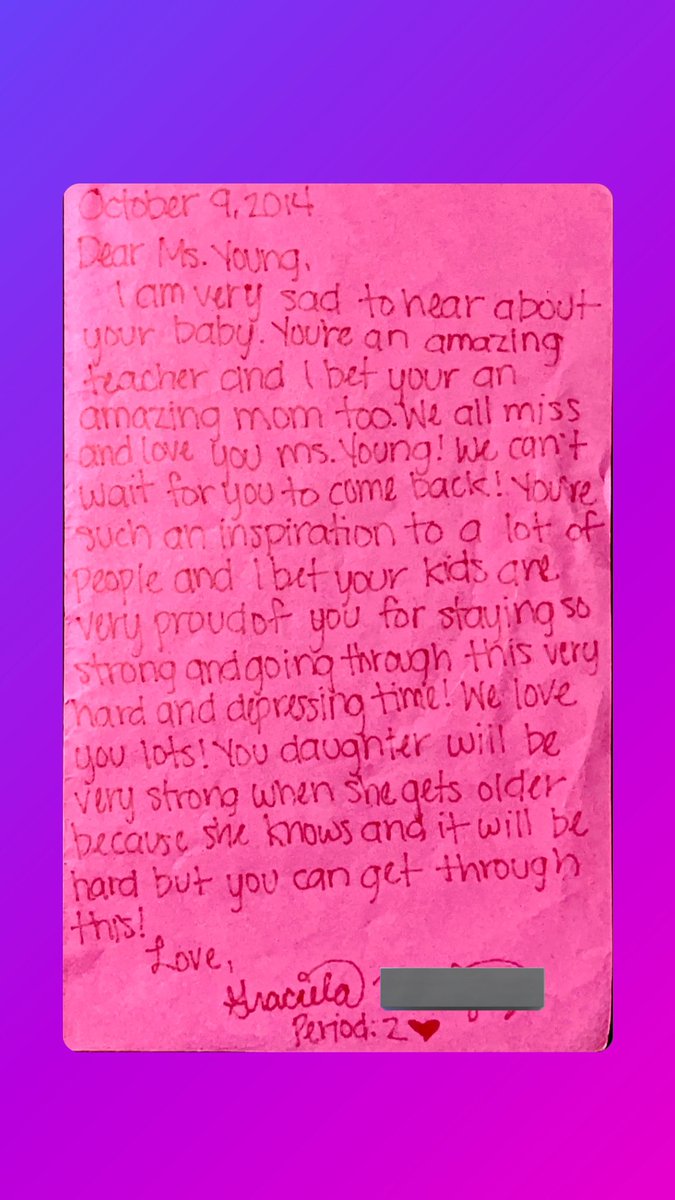 October 9, 2014
Dear Ms. Young,
I am very sad to hear about
your baby. You're an amazing
teacher and I bet your an
amazing mom too. We all miss
and love you ms. Young! We can't
wait for you to come back! You're
such an inspiration to a lot of
people and I bet your kids are
very proud of you for staying so
strong and going through this very
hard and depressing time! We love
you lots! You daughter will be
very strong when she gets older
because she knows and it will be
hard but you can get through
this!
Love,
Graciela
Period: 2